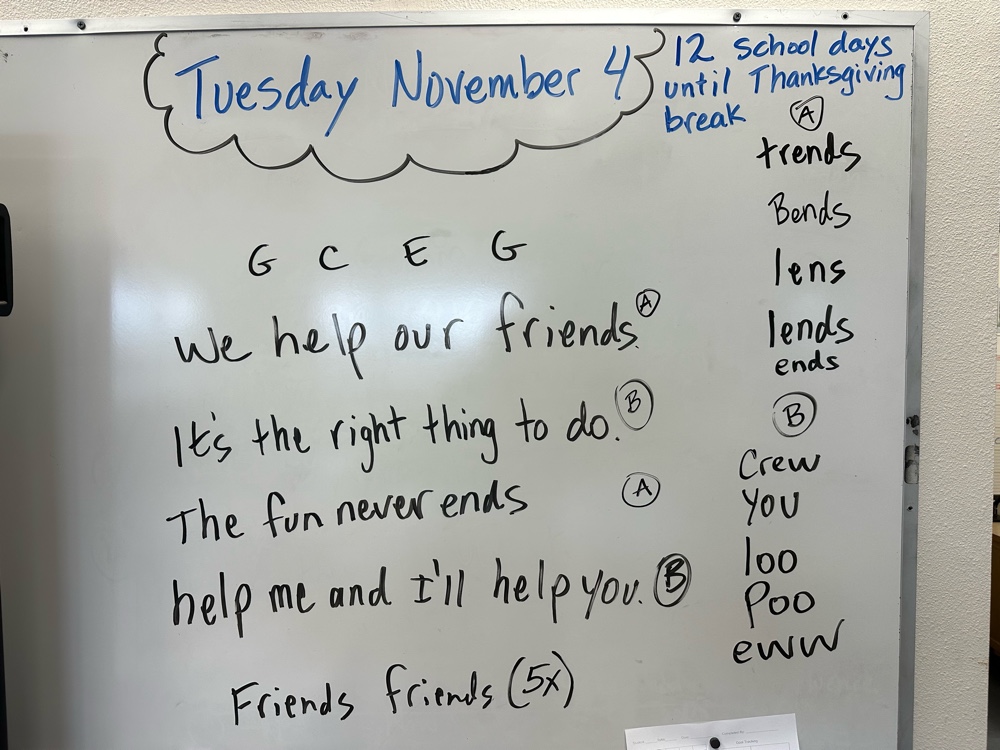 Tuesday November 4
12 school days
until Thanksgiving
break
G C E G
We help our friends. A
It's the right thing to do. B
The fun never ends A
help me and I'll help you. B
Friends friends (5x)
A
trends
Bends
lens
lends
ends
B
Crew
you
loo
Poo
eww